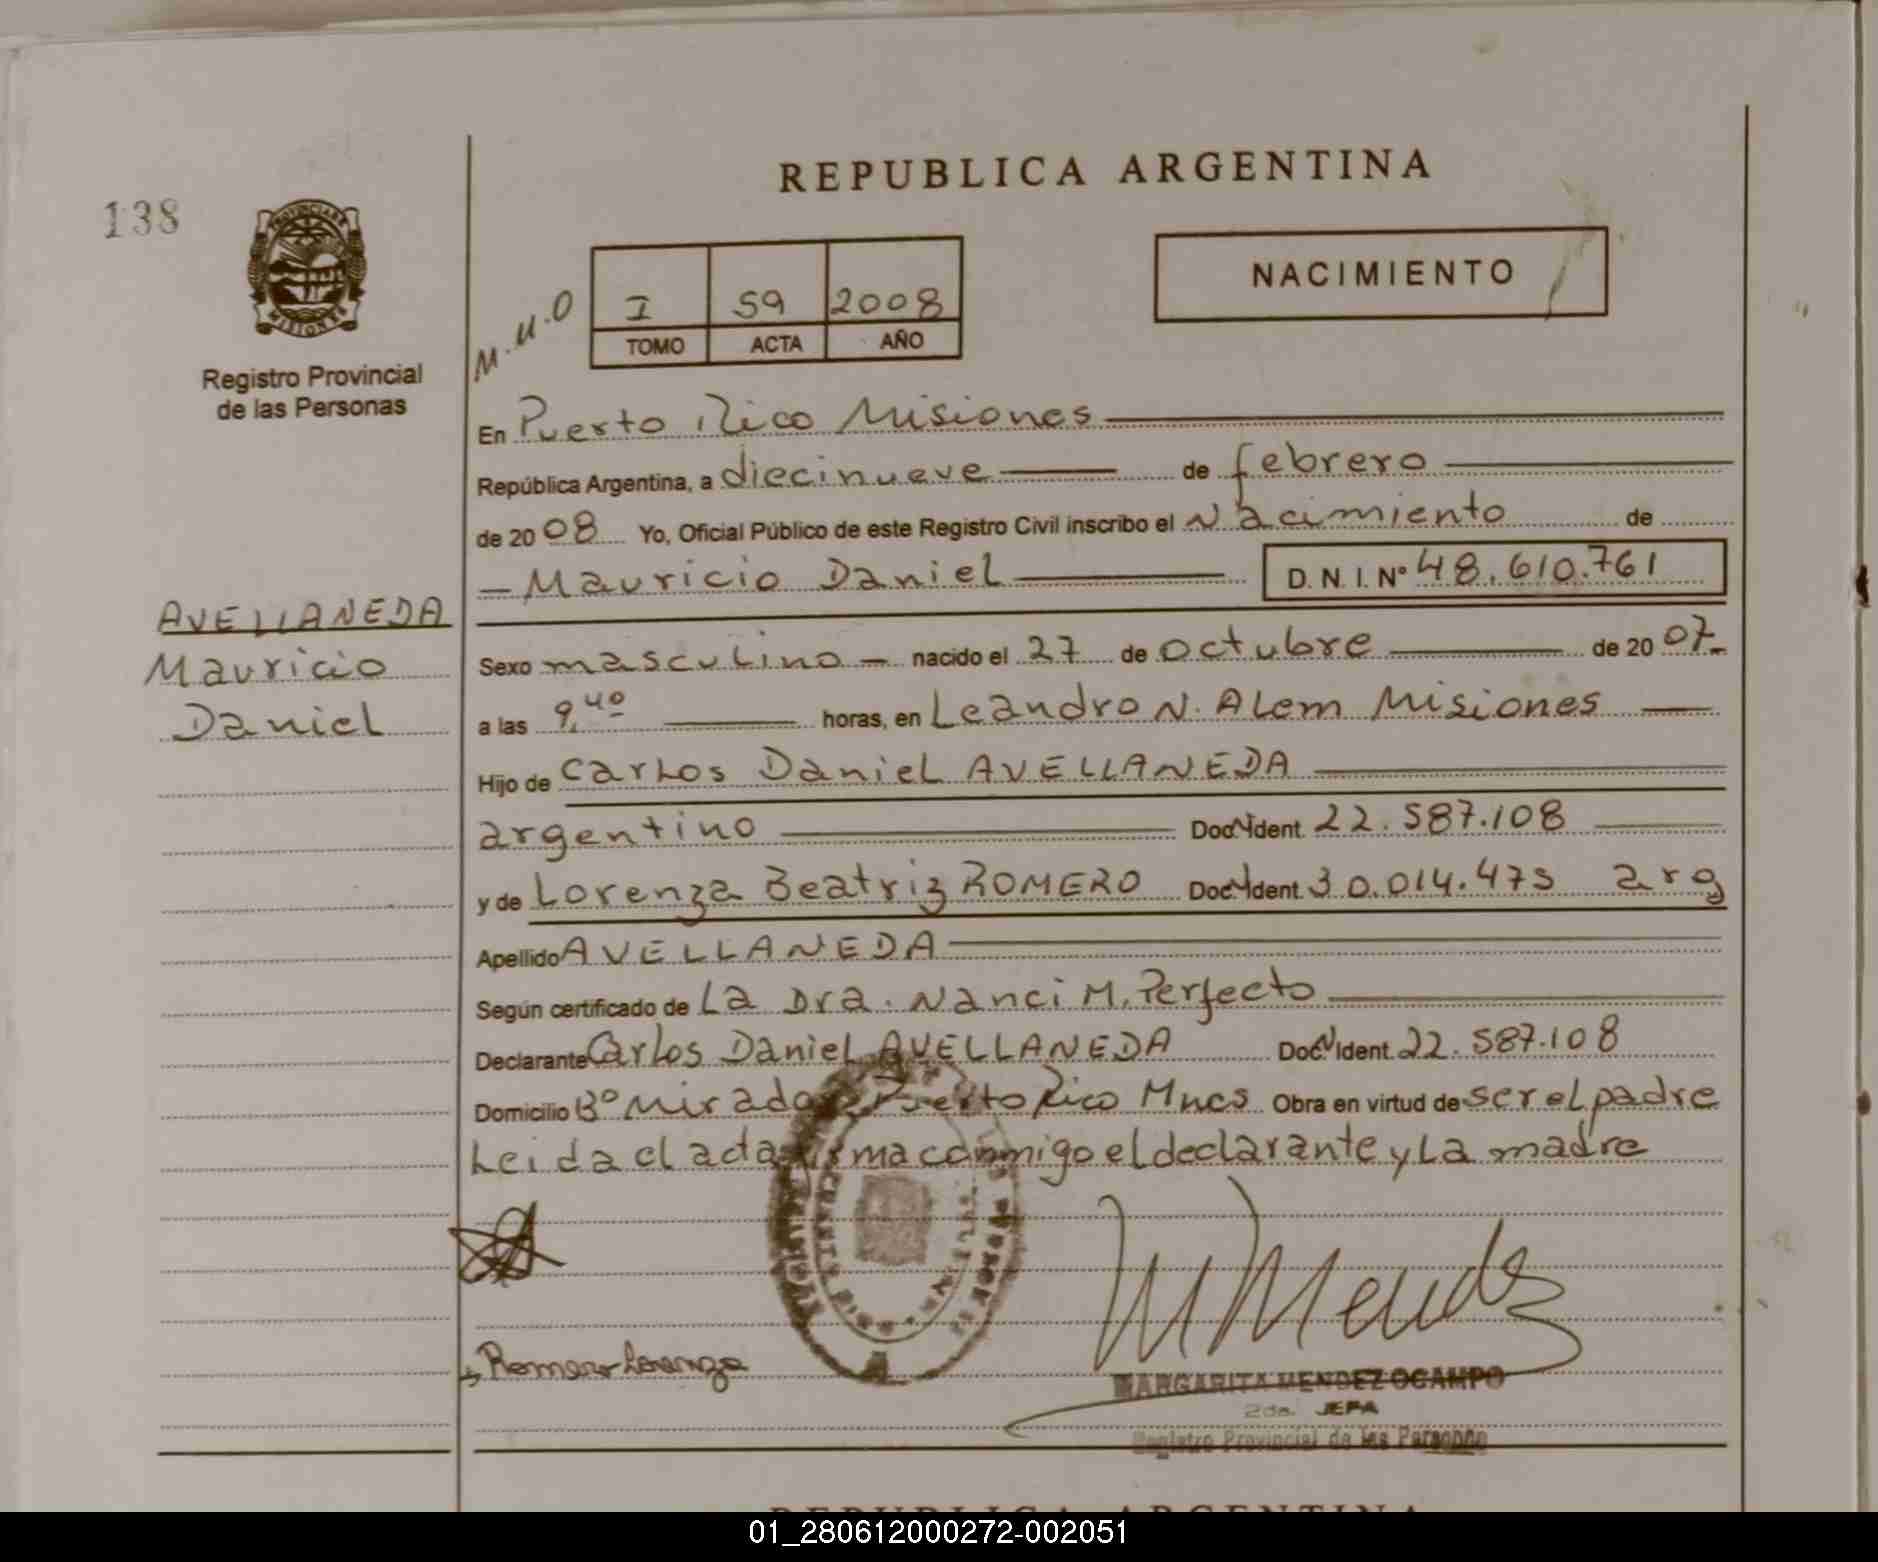 REPUBLICA ARGENTINA
138
PROVINCIA DE
MISIONES
Registro Provincial
de las Personas
M.U.O
I 59 2008
TOMO ACTA AÑO
NACIMIENTO
En Puerto Rico Misiones
República Argentina, a diecinueve de febrero
de 2008 Yo, Oficial Público de este Registro Civil inscribo el Nacimiento de
Mauricio Daniel D.N.I. Nº 48.610.761
AVELLANEDA
Mauricio
Daniel
Sexo masculino nacido el 27 de octubre de 2007
a las 9,40 horas, en Leandro N. Alem Misiones
Hijo de Carlos Daniel AVELLANEDA
argentino Doc. Ident. 22.587.108
y de Lorenza Beatriz ROMERO Doc. Ident. 30.014.475 arg
Apellido AVELLANEDA
Según certificado de La Dra. Nanci M. Perfecto
Declarante Carlos Daniel AVELLANEDA Doc. Ident. 22.587.108
Domicilio Bº Mirador Puerto Rico Mnes Obra en virtud de ser el padre
Leida el acta firma conmigo el declarante y La madre
Romero Lorenza
M Mendez
MARGARITA MENDEZ OCAMPO
2da. JEFA
Registro Provincial de las Personas
REPUBLICA ARGENTINA
01_280612000272-002051